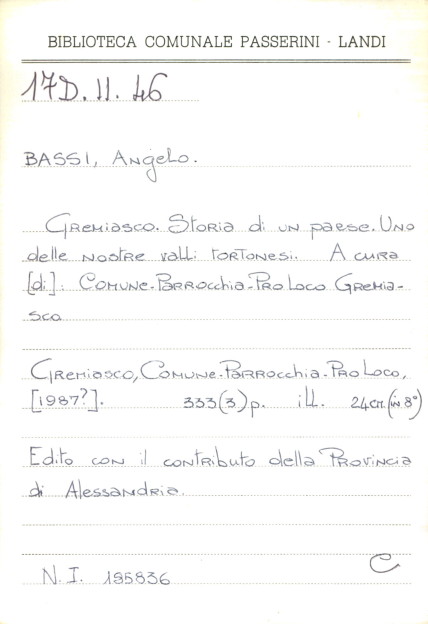 BIBLIOTECA COMUNALE PASSERINI - LANDI
17D. II. 46
BASSI, Angelo.
Gremiasco. Storia di un paese. Uno
delle nostre valli tortonesi. A cura
[di]: Comune-Parrocchia-Pro Loco Gremia-
sco
Gremiasco, Comune-Parrocchia-Pro Loco,
[1987?]. 333(3)p. ill. 24cm.(in 8°)
Edito con il contributo della Provincia
di Alessandria.
C
N.I. 195836